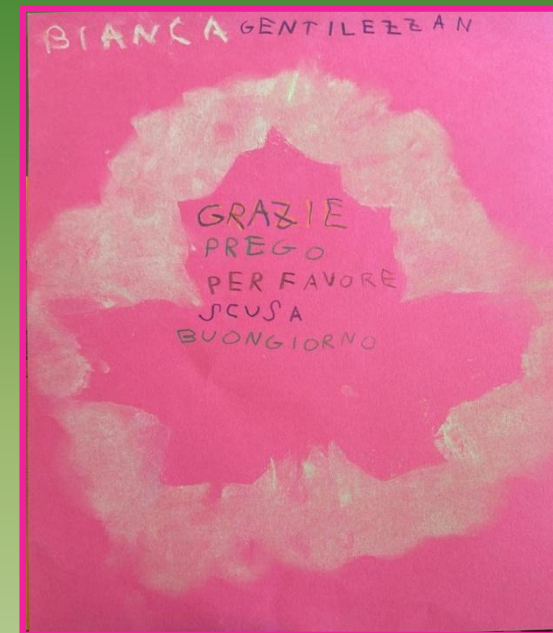 BIANCA GENTILEZZAN
GRAZIE
PREGO
PER FAVORE
SCUSA
BUONGIORNO